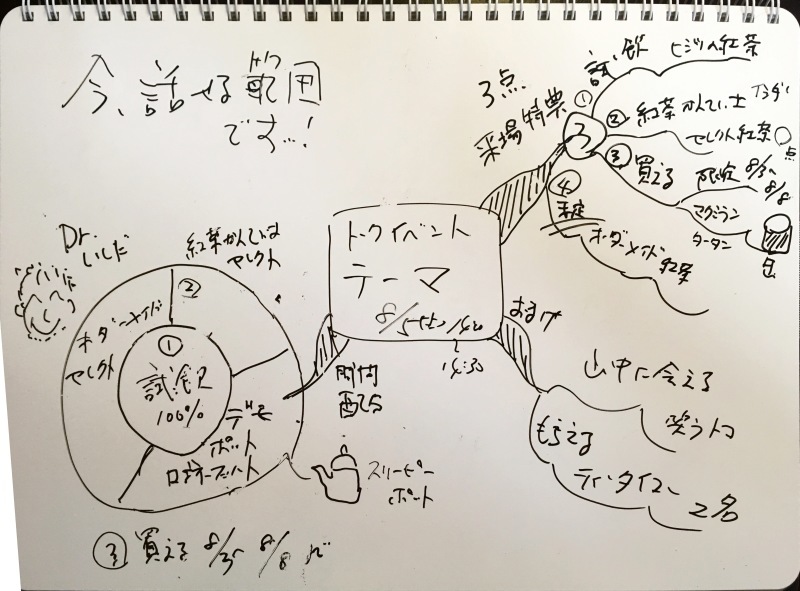 今、話せる範囲
です…!
3点
来場特典
3
①
試飲
ビジリの紅茶
②
紅茶かんてい士
セレクト紅茶
点
③
買える
限定 8/3〜
8/8
マグ
タータン
缶
④
未定
オーダーメイド紅茶
トークイベント
テーマ
8/5(土) 14:00
〜
14:30
おまけ
山中に会える
笑うトコ
もらえる
ティータイム
2名
時間
配分
Dr.
いしだ
紅茶かんていは
セレクト
②
オーダーメイド
セレクト
①
試飲
100%
デモ
ポット
スリーピー
ポット
③ 買える 8/3〜 8/8 まで